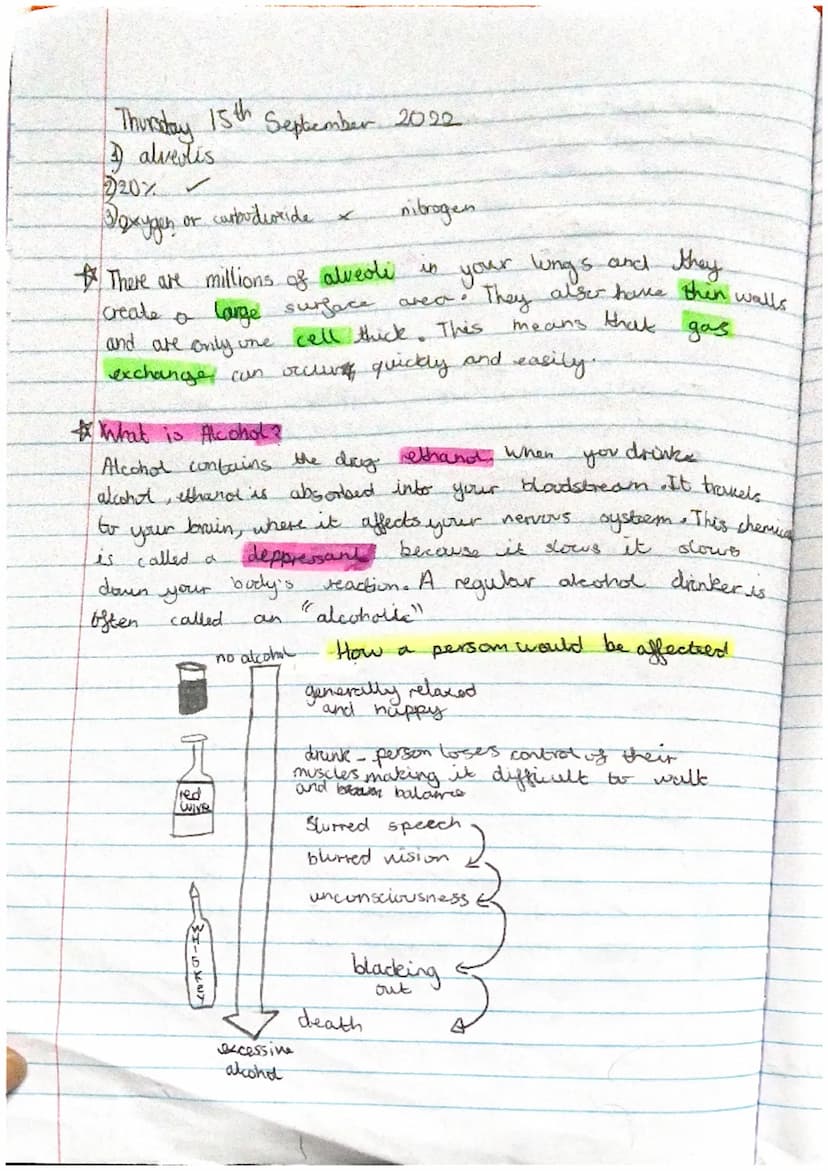 Thursday 15th September 2022
1) alveolis
2) 20% ✓
3) oxygen or carbodioxide x nitrogen
☆ There are millions of alveoli in your lungs and they
create a large surface area. They also have thin walls
and are only one cell thick. This means that gas
exchange can occur quickly and easily.
☆ What is Alcohol?
Alcohol contains the drug ethanol. When you drink
alcohol, ethanol is absorbed into your bloodstream. It travels
to your brain, where it affects your nervous system. This chemical
is called a deppressant because it slows it slows
down your body's reaction. A regular alcohol drinker is
often called an "alcoholic"
no alcohol How a person would be affected
generally relaxed
and happy
drunk - person loses control of their
muscles making it difficult to walk
and balance
red
wine
Slurred speech
blurred vision
unconsciousness
WHISKEY
blacking
out
death
excessive
alcohol